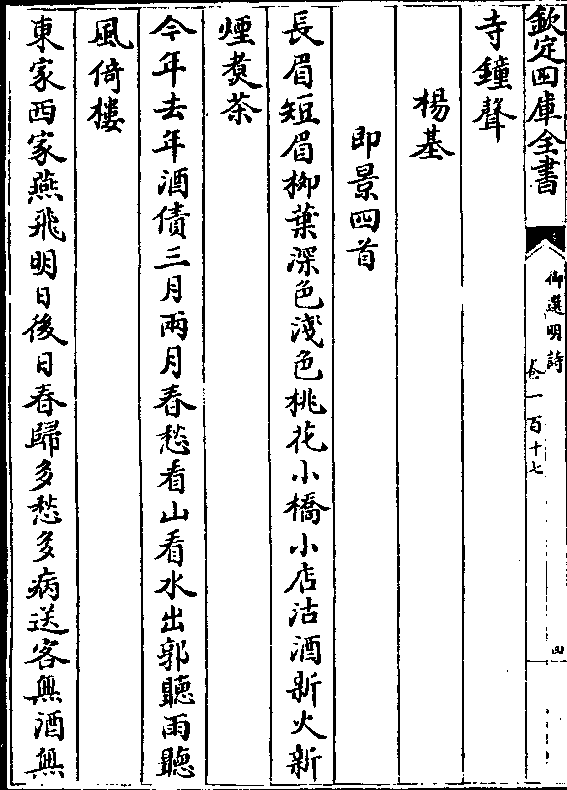 欽定四庫全書
御選明詩
卷一百十七
四
寺鐘聲
楊基
即景四首
長眉短眉柳葉深色淺色桃花小橋小店沽酒新火新
煙煑茶
今年去年酒債三月兩月春愁看山看水出郭聽雨聽
風倚樓
東家西家燕飛明日後日春歸多愁多病送客無酒無